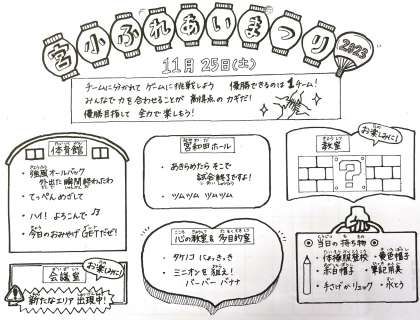 宮小ふれあいまつり
2023
11月25日(土)
チームに分かれて ゲームに挑戦しよう 優勝できるのは1チーム!
みんなで力を合わせることが 高得点のカギだ!
優勝目指して 全力で楽しもう!
体育館
・強風オールバック
外出た瞬間終わったわ
・てっぺんめざして
・ハイ! よろこんで♬
・今日のおみやげ GETだぜ!
宮和田ホール
・あきらめたら そこで
試合終了ですよ!
・ツムツム ツムツム
教室
お楽しみに!
?
会議室
お楽しみに!
新たなエリア 出現中!
心の教室&多目的室
・タケノコ にょっきっき
・ミニオンを狙え!
バーバー バナナ
当日の持ち物
・体操服登校 ・黄色帽子
・赤白帽子 ・筆記用具
・手さげかリュック ・水とう